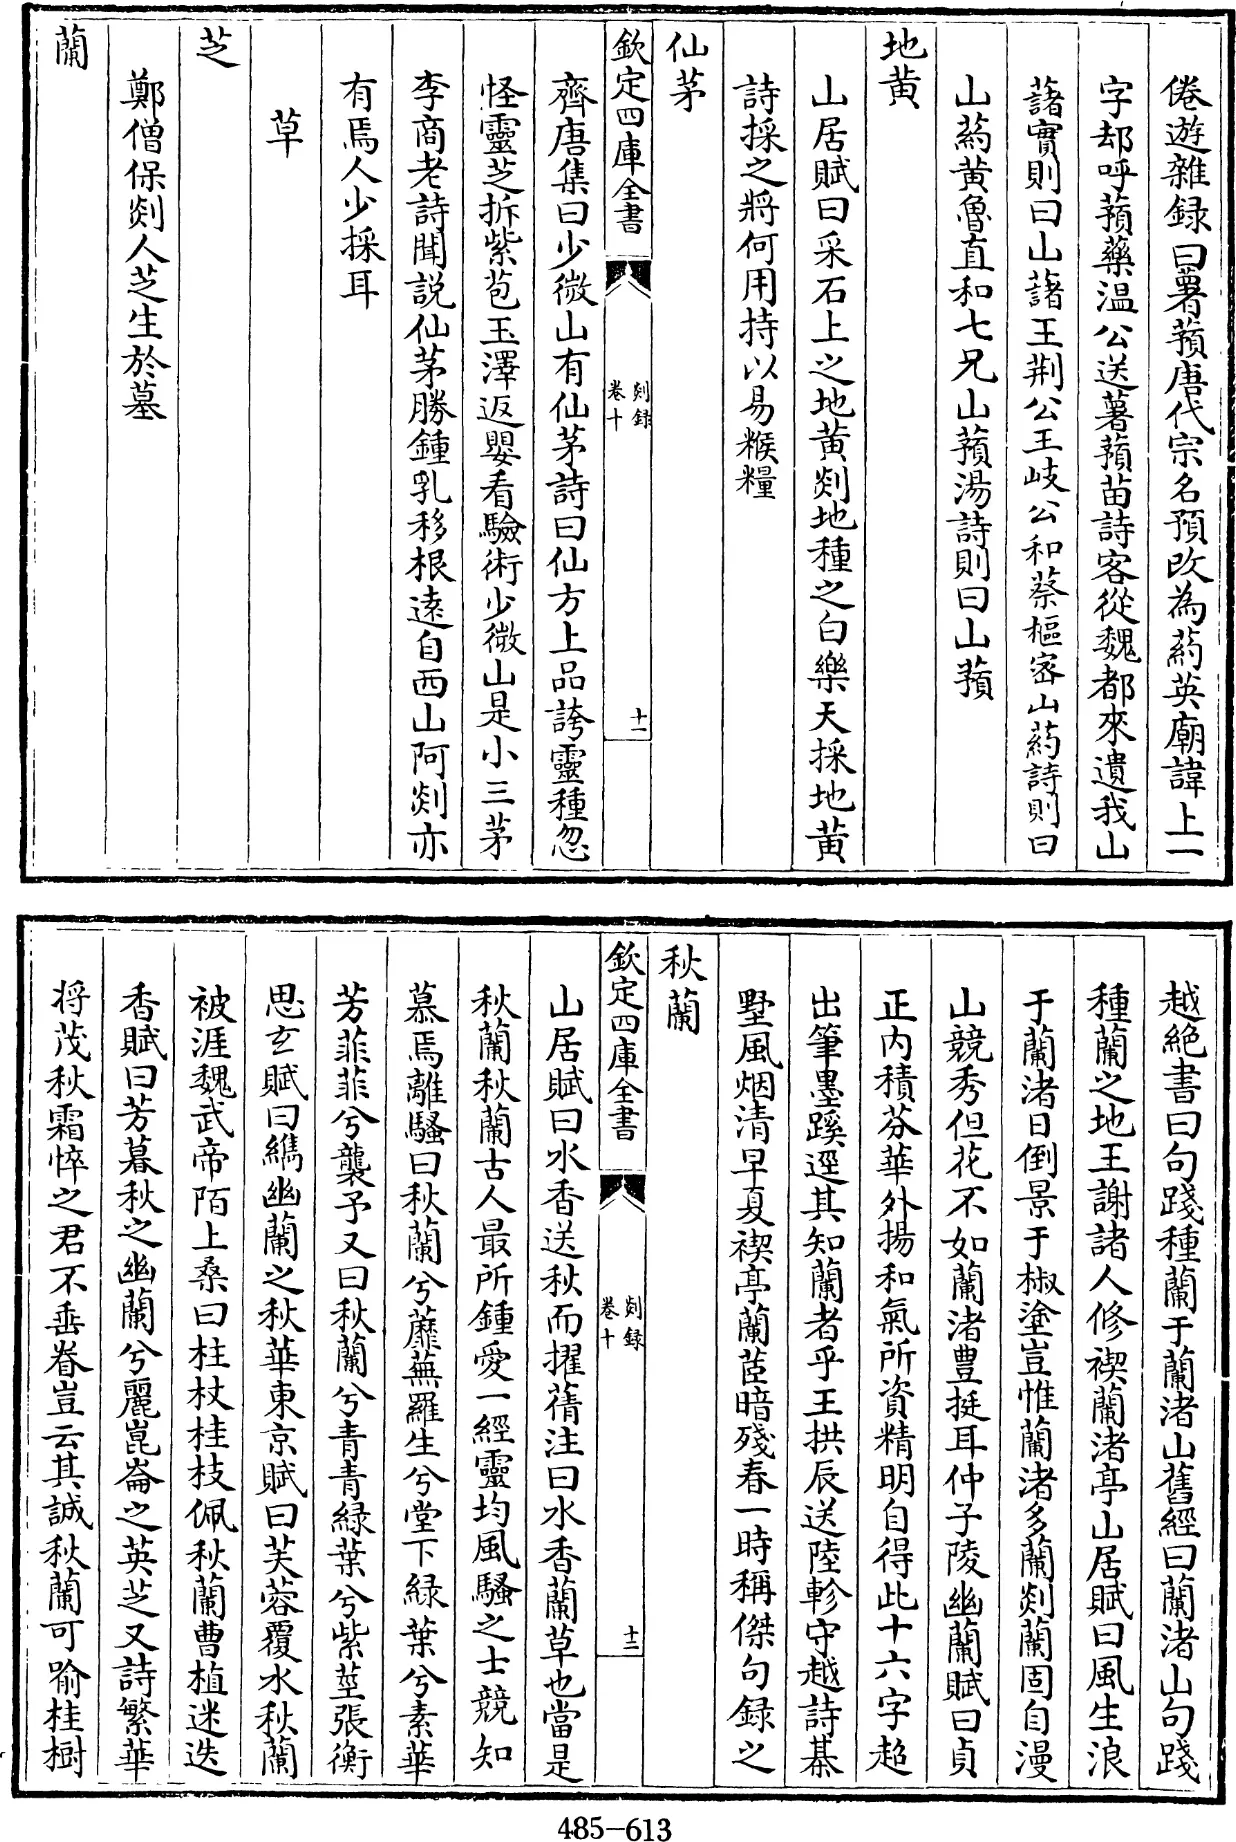 倦遊雜録曰薯蕷唐代宗名預改為藥英廟諱上一
字却呼蕷藥温公送薯蕷苗詩客從魏都來遺我山
藷實則曰山藷王荆公王岐公和蔡樞密山藥詩則曰
山藥黄魯直和七兄山蕷湯詩則曰山蕷
地黄
山居賦曰采石上之地黄剡地種之白樂天採地黄
詩採之將何用持以易糇糧
仙茅
欽定四庫全書
剡録
卷十
十一
齊唐集曰少微山有仙茅詩曰仙方上品誇靈種忽
怪靈芝拆紫苞玉澤返嬰看驗術少微山是小三茅
李商老詩聞説仙茅勝鍾乳移根遠自西山阿剡亦
有焉人少採耳
草
芝
鄭僧保剡人芝生於墓
蘭
越絶書曰句踐種蘭于蘭渚山舊經曰蘭渚山句踐
種蘭之地王謝諸人修禊蘭渚亭山居賦曰風生浪
于蘭渚日倒景于椒塗豈惟蘭渚多蘭剡蘭固自漫
山競秀但花不如蘭渚豊挺耳仲子陵幽蘭賦曰貞
正内積芬華外揚和氣所資精明自得此十六字超
出筆墨蹊逕其知蘭者乎王拱辰送陸軫守越詩棊
墅風烟清早夏禊亭蘭茝暗殘春一時稱傑句録之
秋蘭
欽定四庫全書
剡録
卷十
十二
山居賦曰水香送秋而擢蒨注曰水香蘭草也當是
秋蘭秋蘭古人最所鍾愛一經靈均風騷之士競知
慕焉離騷曰秋蘭兮蘼蕪羅生兮堂下緑葉兮素華
芳菲菲兮襲予又曰秋蘭兮青青緑葉兮紫莖張衡
思玄賦曰纗幽蘭之秋華東京賦曰芙蓉覆水秋蘭
被涯魏武帝陌上桑曰柱杖桂枝佩秋蘭曹植迷迭
香賦曰芳暮秋之幽蘭兮麗崑崙之英芝又詩繁華
将茂秋霜悴之君不垂眷豈云其誠秋蘭可喻桂樹
485-613